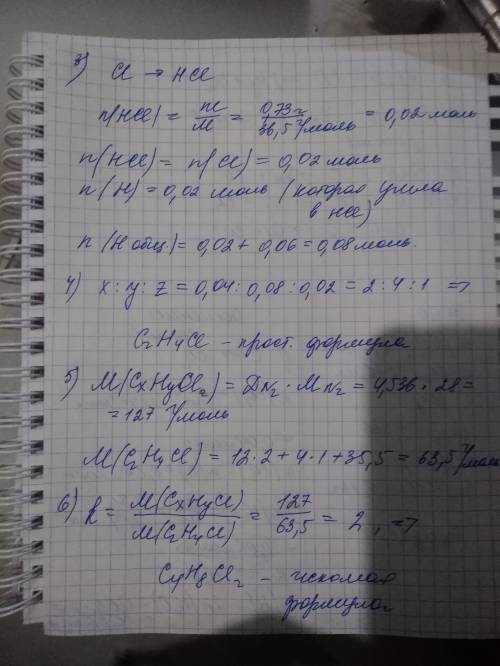 3) Cl → HCl
n(HCl) = m/M = 0,73г/36,5г/моль = 0,02 моль
n(HCl) = n(Cl) = 0,02 моль
n(H) = 0,02 моль (которая ушла
в HCl)
n(H общ.) = 0,02 + 0,06 = 0,08 моль.
4) x : y : z = 0,04 : 0,08 : 0,02 = 2 : 4 : 1 =>
C2H4Cl – прост. формула
5) M(CxHyClz) = DN2 · MN2 = 4,536 · 28 =
= 127 г/моль
M(C2H4Cl) = 12·2 + 4·1 + 35,5 = 63,5 г/моль
6) k = M(CxHyCl)/M(C2H4Cl) = 127/63,5 = 2, =>
C4H8Cl2 – искомая
формула